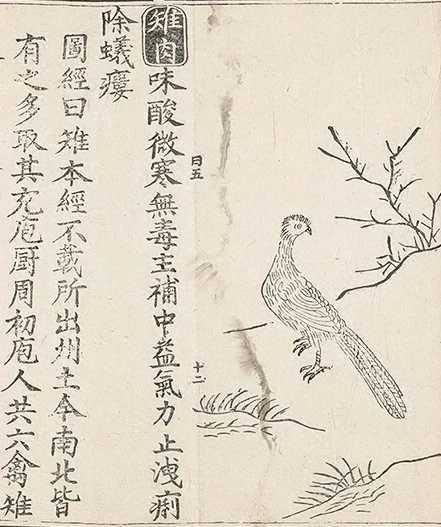 曰五
十二
雉肉味酸微寒無毒主補中益氣力止洩痢
除蟻瘻
圖經曰雉本經不載所出州土今南北皆
有之多取其充庖厨周初庖人共六禽雉